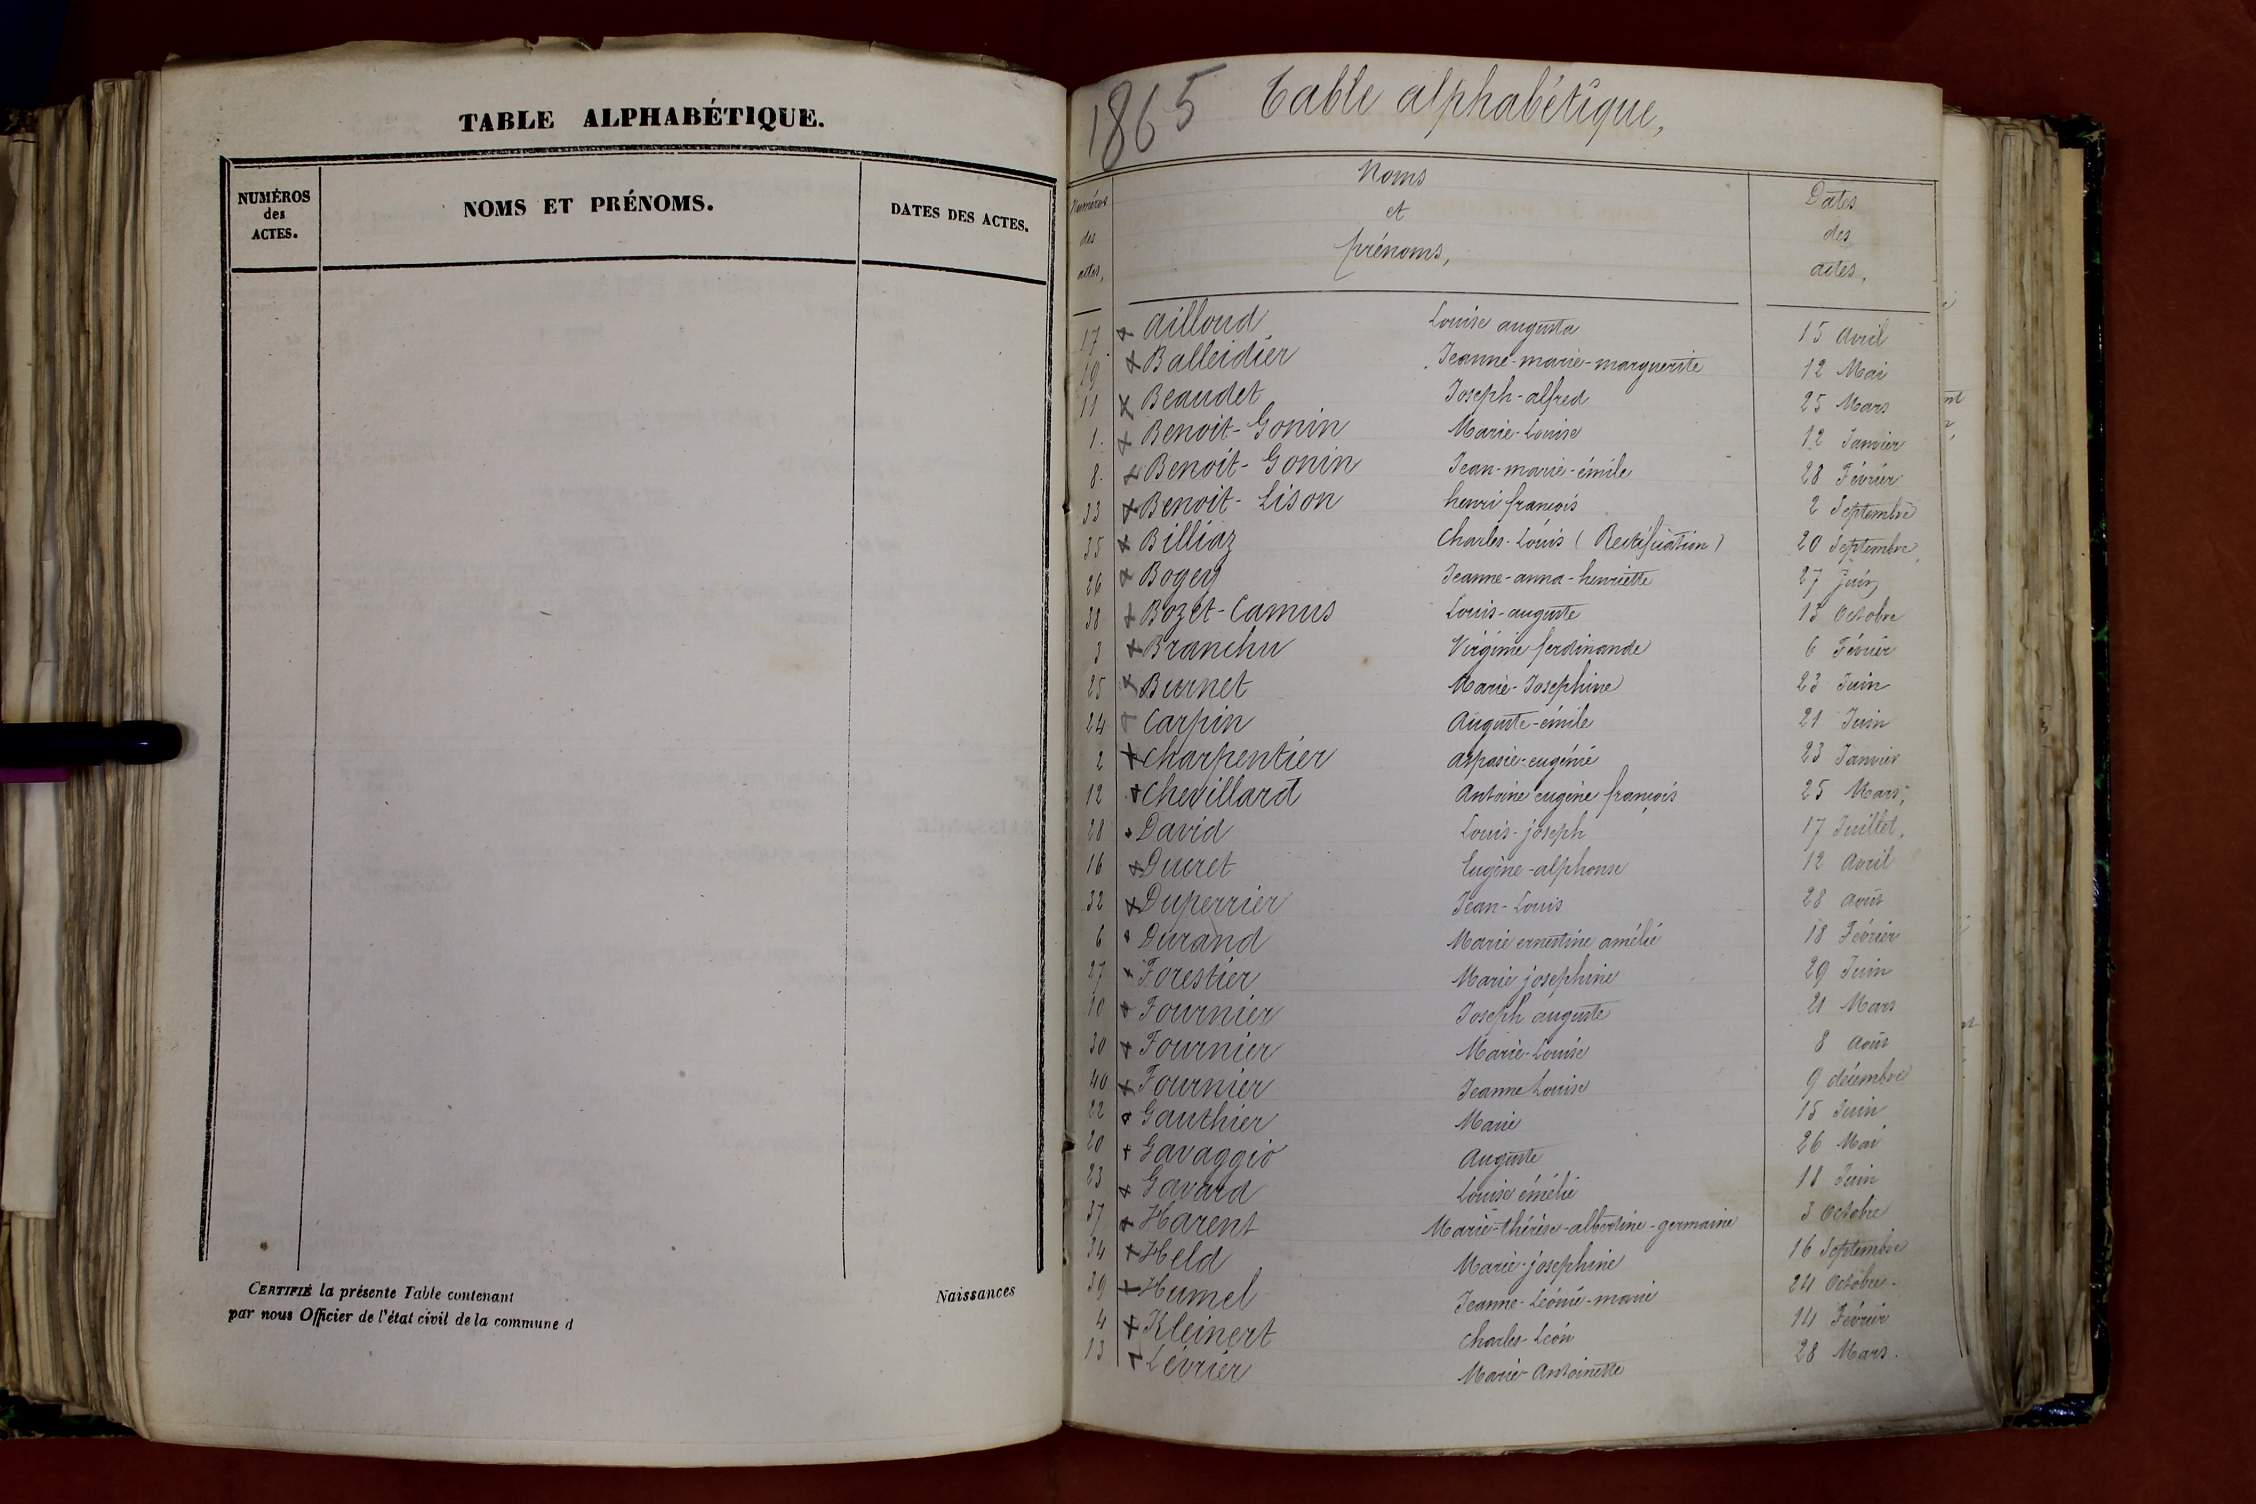 TABLE ALPHABÉTIQUE.
NUMÉROS
des
ACTES.
NOMS ET PRÉNOMS.
DATES DES ACTES.
CERTIFIÉ la présente Table contenant
Naissances
par nous Officier de l'état civil de la commune d
1865 Table alphabétique,
Numéros
des
actes,
Noms
et
prénoms,
Dates
des
actes,
17 Ailloud Louise augusta 15 Avril
19 Balleidier Jeanne-marie-marguerite 12 Mai
11 Beaudet Joseph-alfred 25 Mars
1. Benoit-Gonin Marie-Louise 12 Janvier
8. Benoit-Gonin Jean-marie-émile 28 Février
33 Benoit-Lison henri françois 2 Septembre
35 Billiaz Charles-Louis (Rectification) 20 Septembre
26 Bogey Jeanne-anna-henriette 27 Juin
38 Bozet-Camus Louis-auguste 15 Octobre
3 Branchu Virginie ferdinande 6 Février
25 Burnet Marie-Josephine 23 Juin
24 Carpin Auguste-émile 21 Juin
2 Charpentier aspasie-eugénie 23 Janvier
12 Chevillard Antoine eugène françois 25 Mars
28 David Louis-joseph 17 Juillet.
16 Ducret Eugène-alphonse 12 Avril
32 Duperrier Jean-Louis 28 Août
6 Durand Marie ernestine amélie 18 Février
27 Forestier Marie josephine 29 Juin
10 Fournier Joseph auguste 21 Mars
30 Fournier Marie-Louise 8 Août
40 Fournier Jeanne Louise 9 décembre
22 Gauthier Marie 15 Juin
20 Gavaggio Auguste 26 Mai
23 Gavard Louise émélie 18 Juin
37 Harent Marie-thérèse-albertine-germaine 3 Octobre
34 Held Marie-josephine 16 Septembre
39 Humel Jeanne-Léonie-marie 24 Octobre.
4 Kleinert Charles-Léon 14 Février
13 Lévrier Marie-Antoinette 28 Mars.